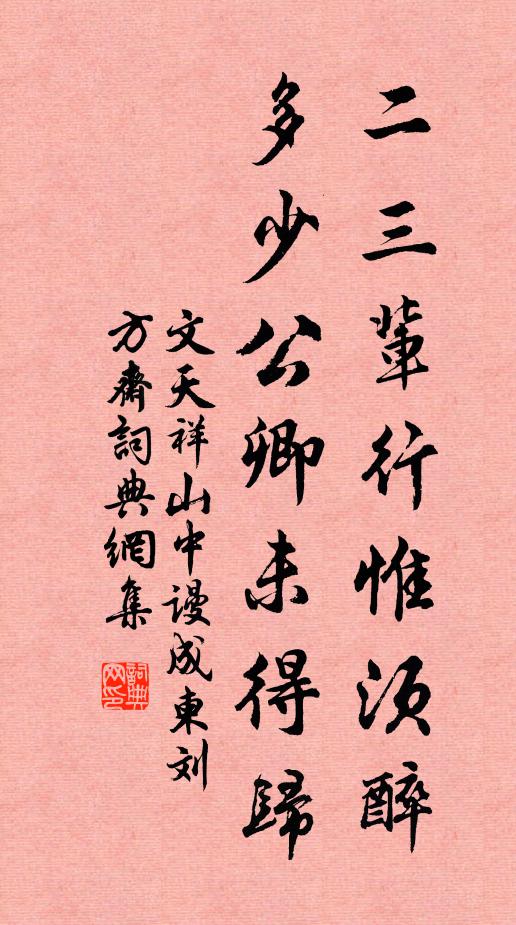 二三輩行惟須醉
多少公卿未得歸
文天祥山中谩成東刘
方齋詞典網集
詞典
网印